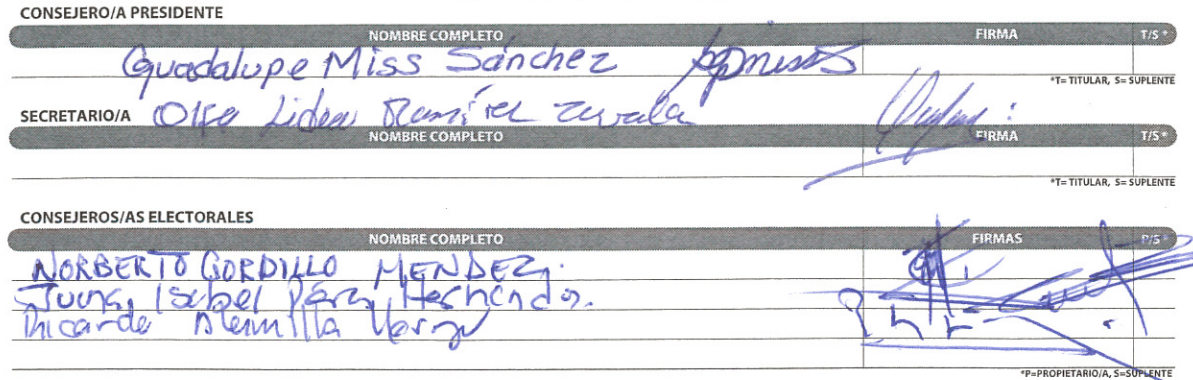 CONSEJERO/A PRESIDENTE
NOMBRE COMPLETO FIRMA T/S *
Guadalupe Miss Sánchez
*T= TITULAR, S= SUPLENTE
SECRETARIO/A Lidia Ramírez
NOMBRE COMPLETO FIRMA T/S *
*T= TITULAR, S= SUPLENTE
CONSEJEROS/AS ELECTORALES
NOMBRE COMPLETO FIRMAS P/S *
NORBERTO GORDILLO MENDEZ.
Juana Isabel Pérez Hernández.
Ricardo
*P=PROPIETARIO/A, S=SUPLENTE